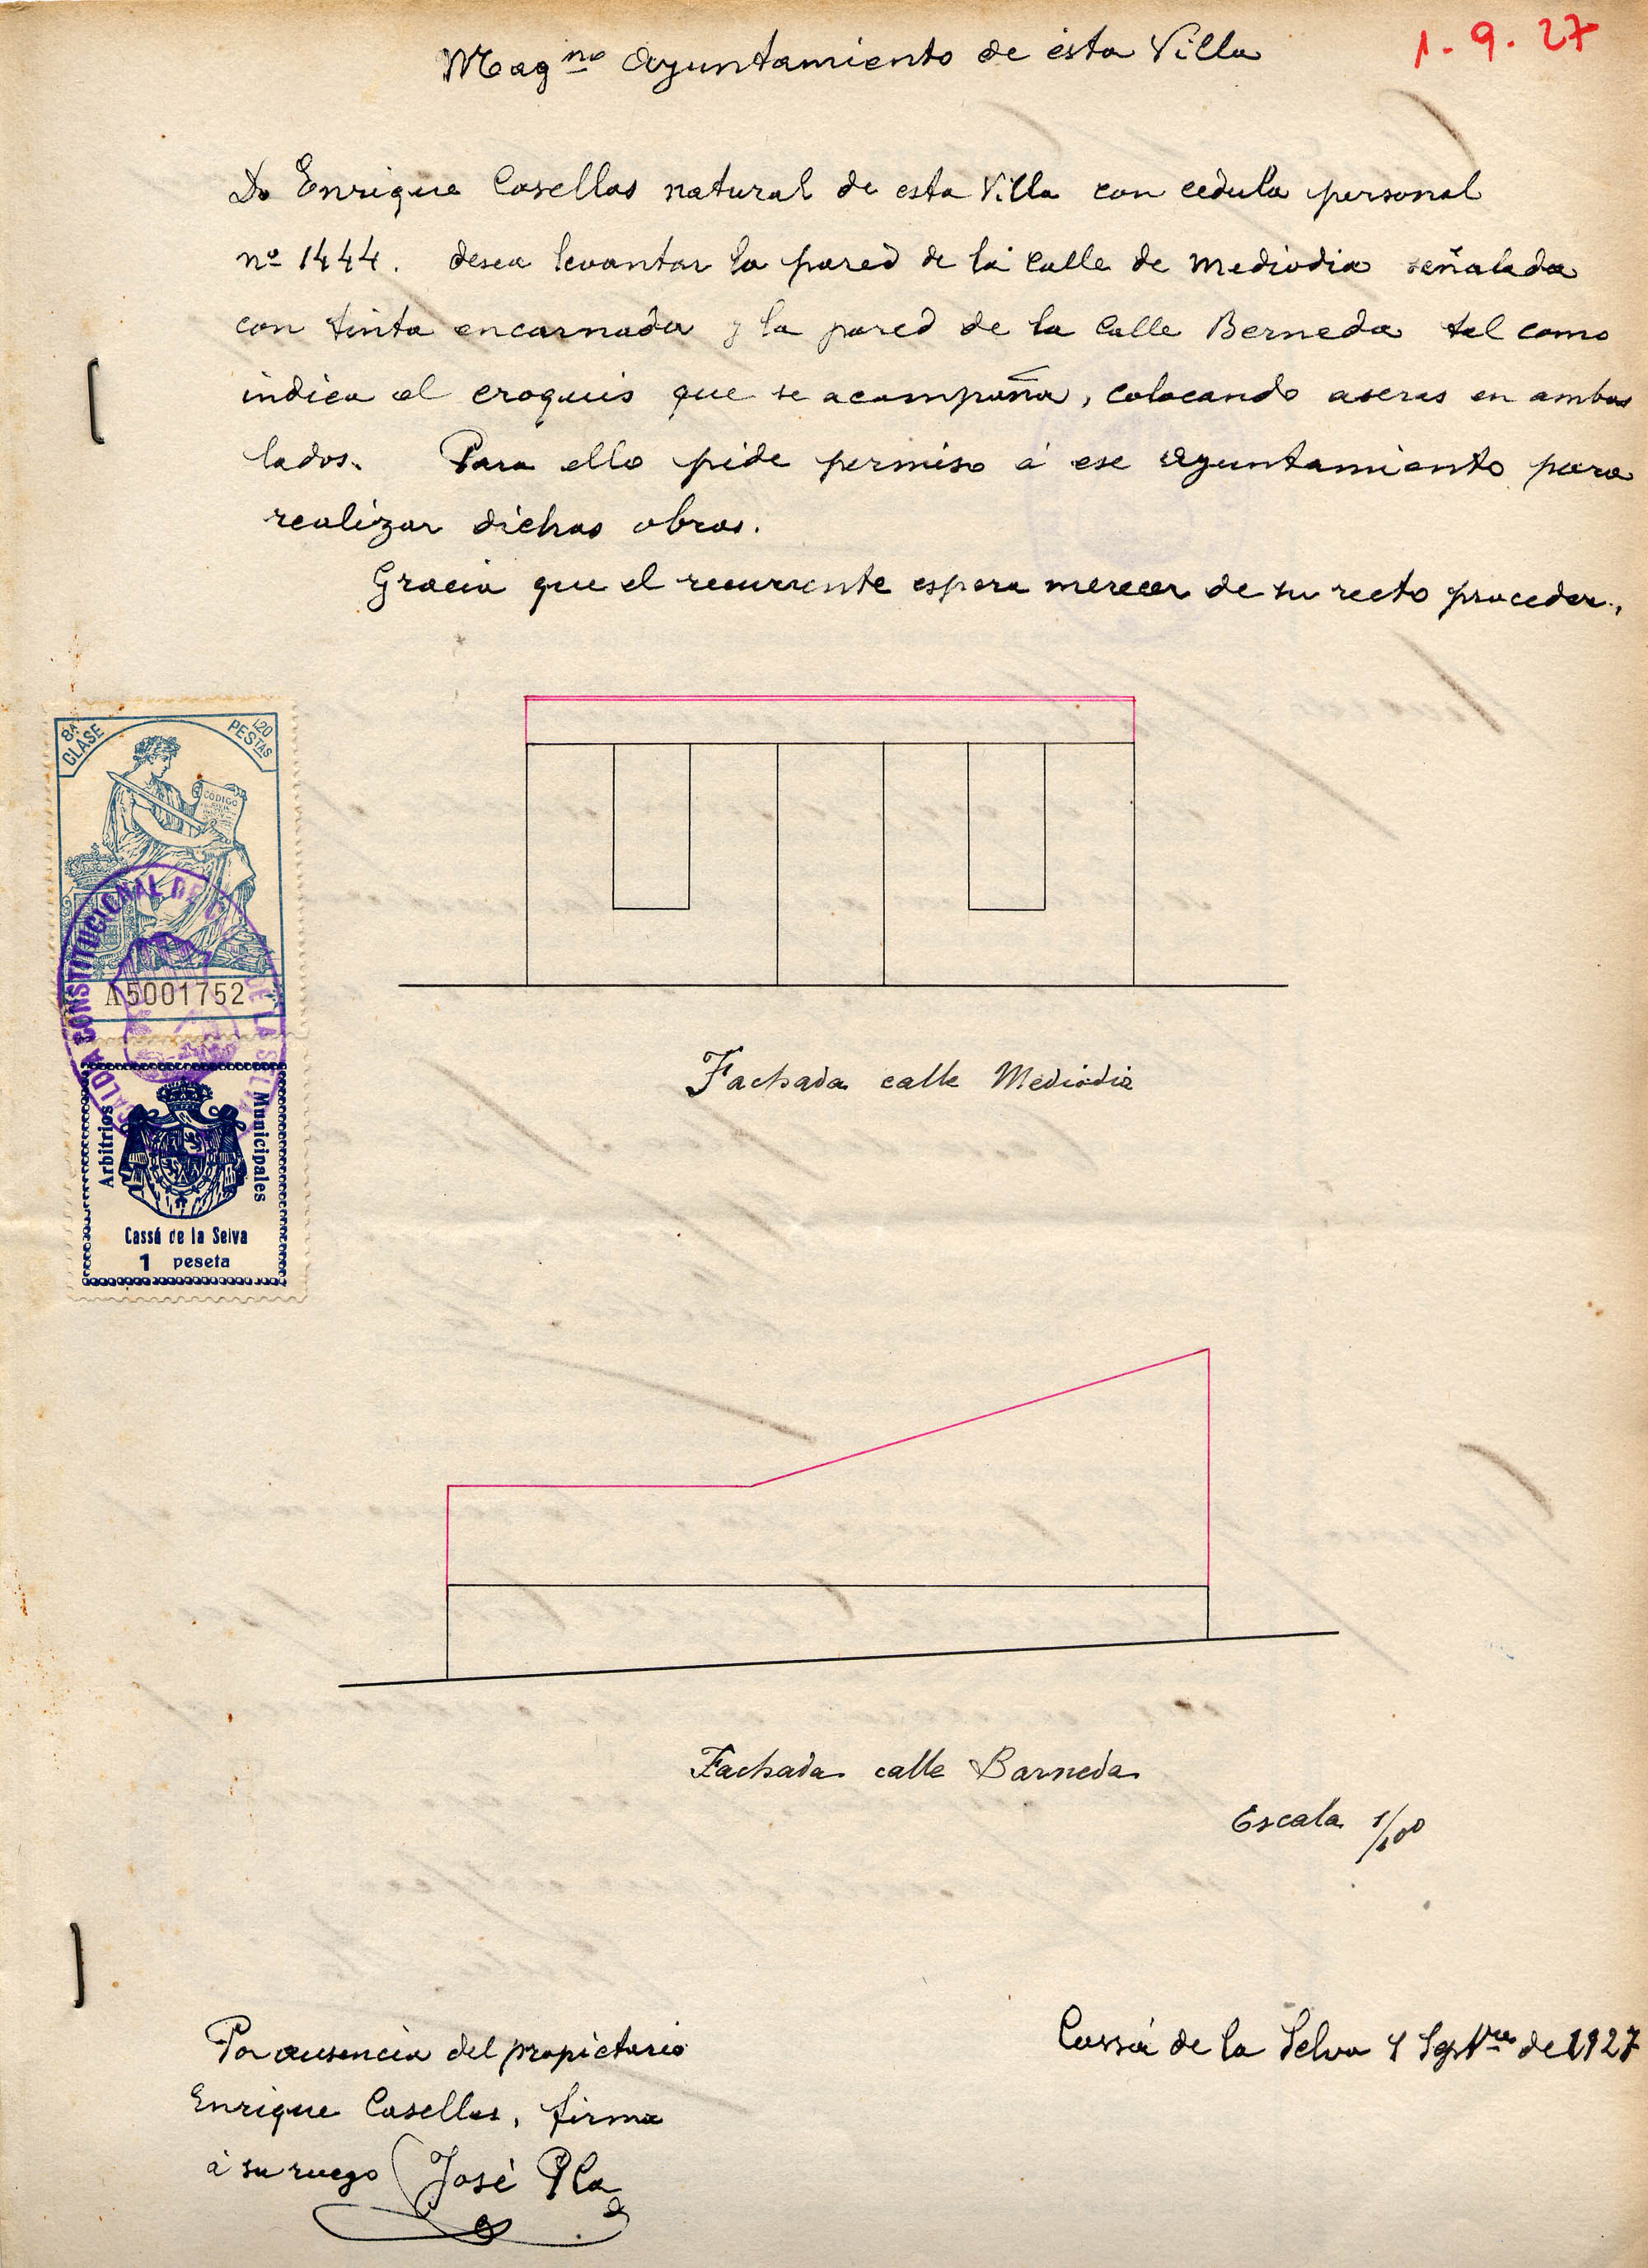 Mag.no Ayuntamiento de ésta Villa
1.9.27
Dn Enrique Casellas natural de esta Villa con cedula personal
nº 1444. desea levantar la pared de la Calle de Mediodia señalada
con tinta encarnada y la pared de la Calle Berneda tal como
indica el croquis que se acompaña, colocando aseras en ambos
lados. Para ello pide permiso á ese Ayuntamiento para
realizar dichas obras.
Gracia que el recurrente espera merecer de su recto proceder.
8ª CLASE
1,20 PESTAS
CODIGO
A5001752
CONSTITUCIONAL DE
DE LA SELVA
Arbitrios
Municipales
Cassá de la Selva
1 peseta
Fachada calle Mediodia
Fachada calle Barneda
Escala 1/100
Por ausencia del propietario
Enrique Casellas, firma
á su ruego José Pla
Cassá de la Selva 1 Sepbre de 1927